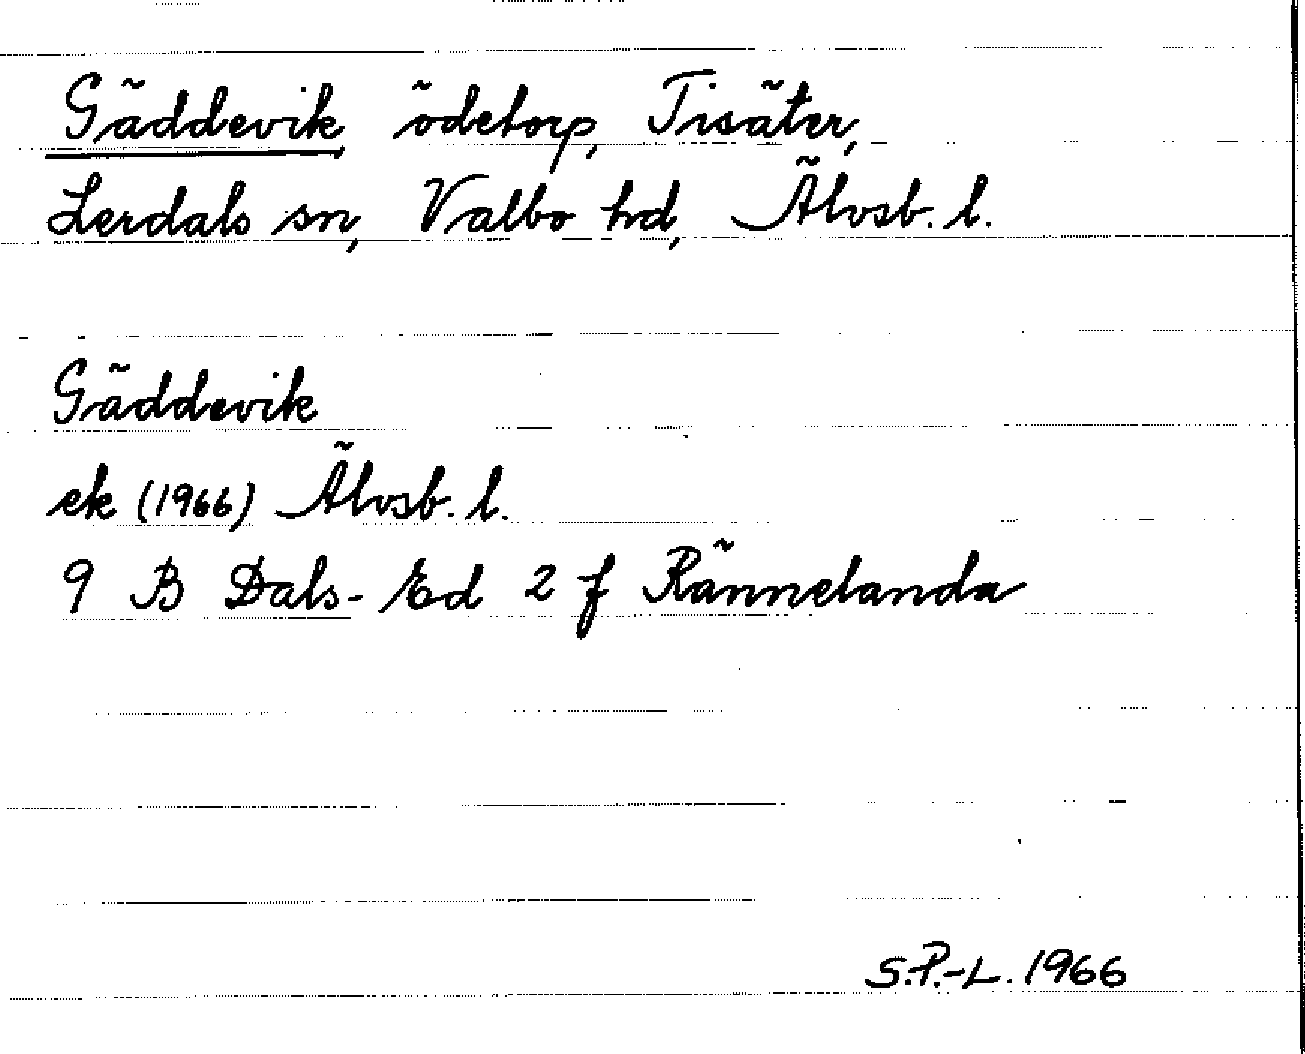 Gäddevik, ödetorp, Tisäter,
Lerdals sn, Valbo hd, Älvsb. l.
Gäddevik
ek (1966) Älvsb. l.
9 B Dals-Ed 2 f Rännelanda
S.P.-L. 1966